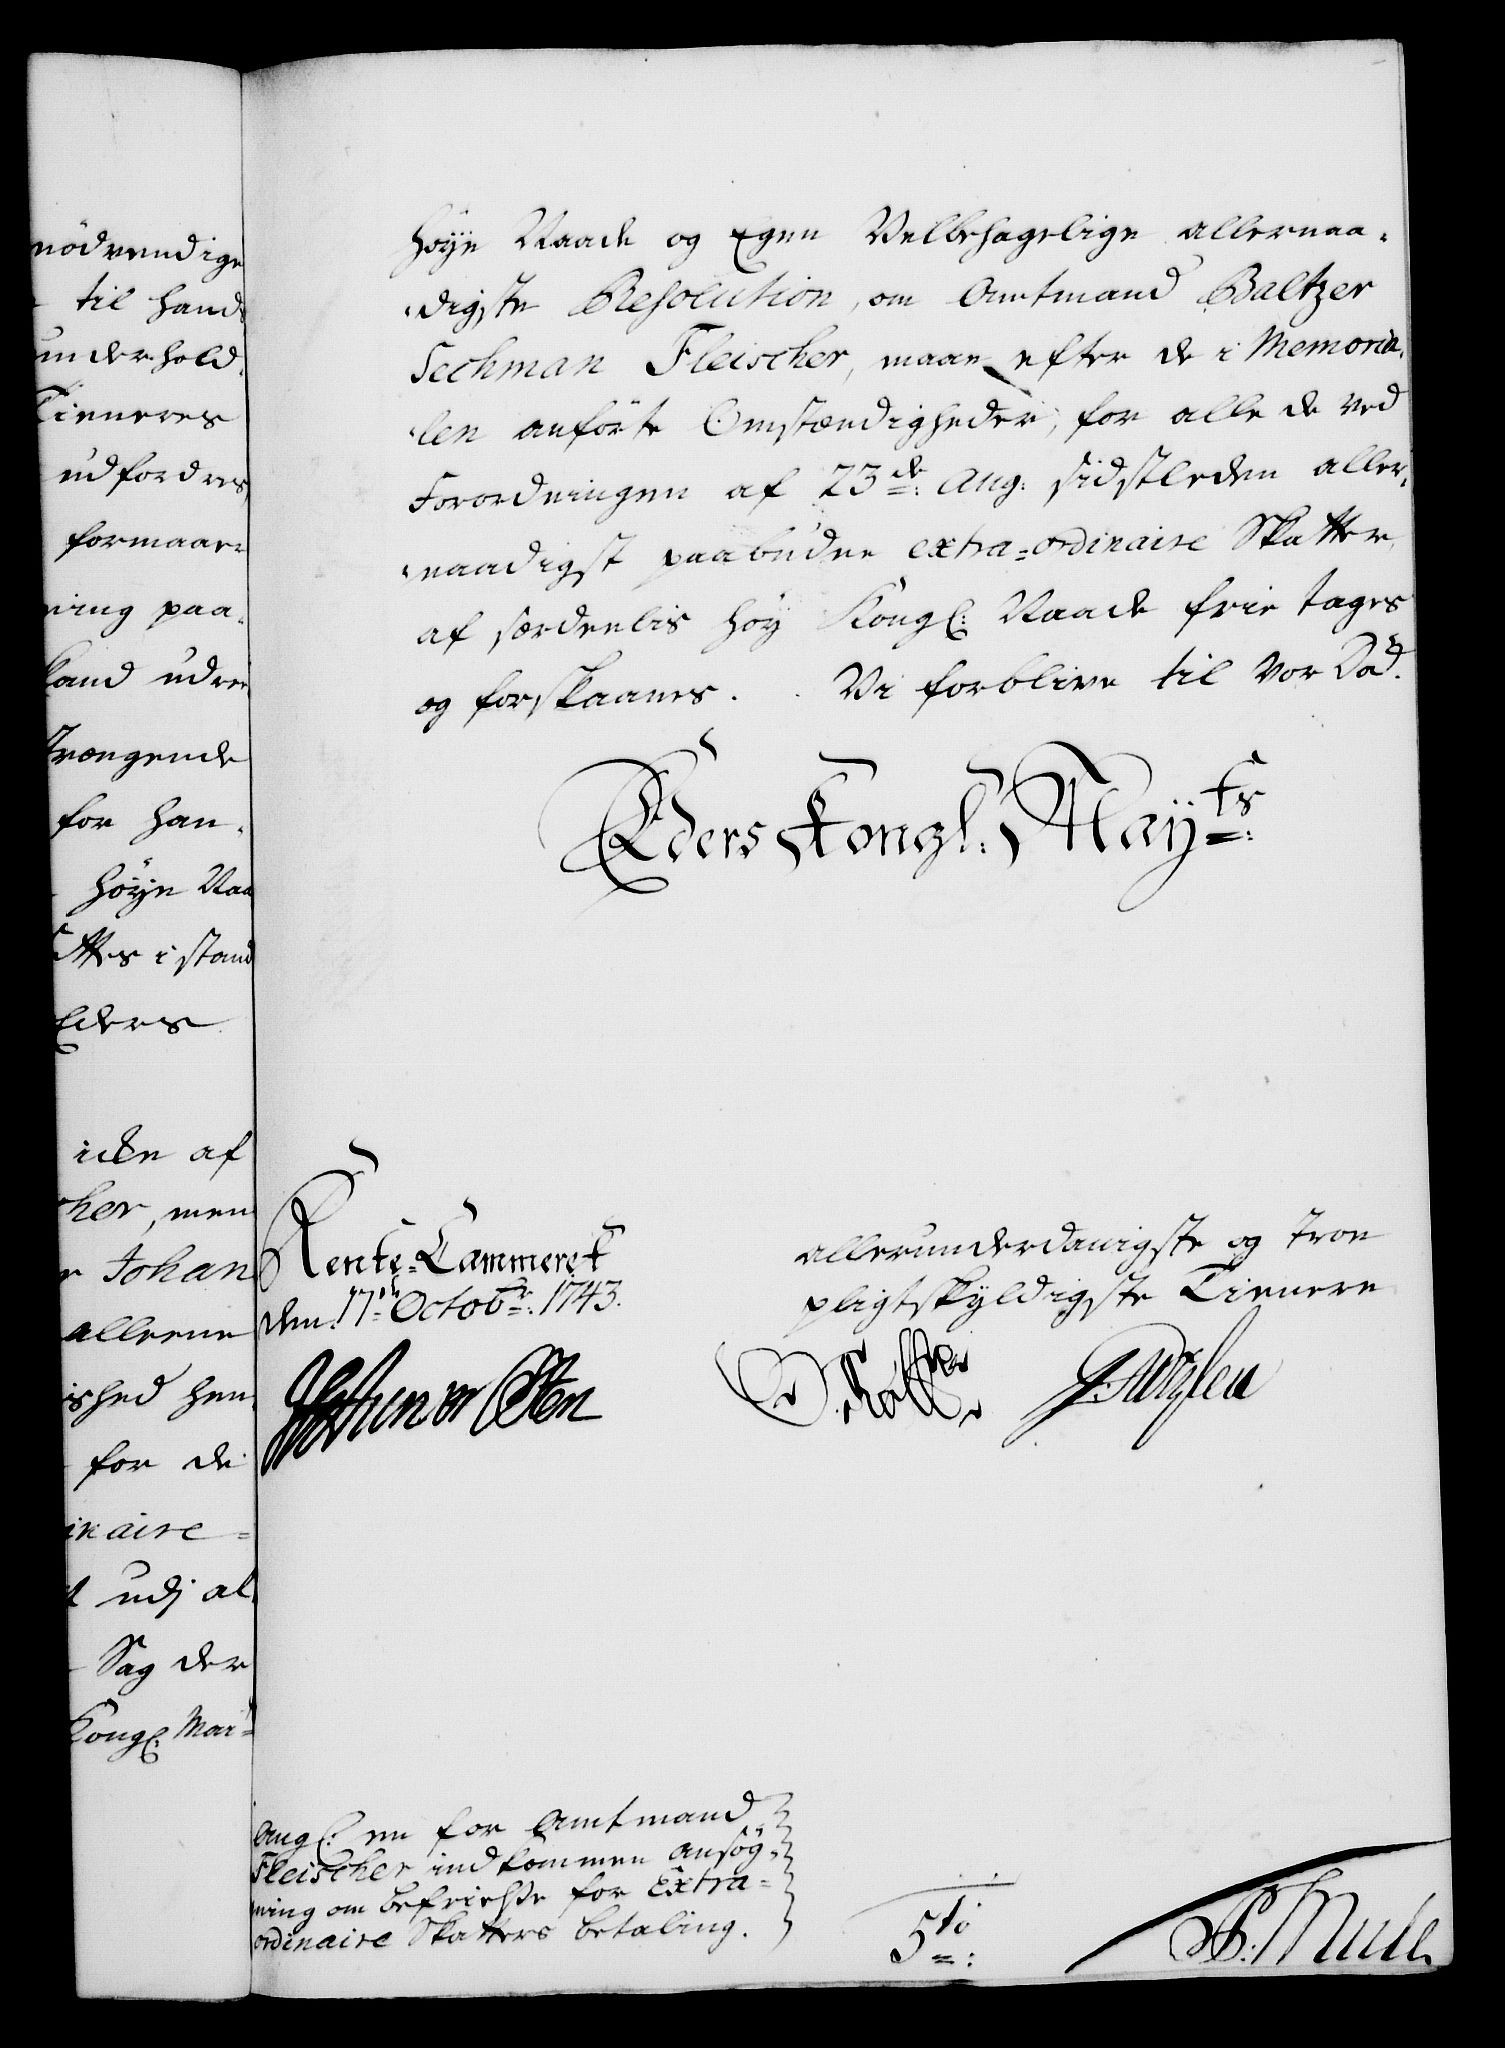 nödvendige
til hand
underhold
Tieneres
udfordres
formaae
ning paa
land udre
trængende
for han
höye Naa
ttes i stand
Eders
icke af
her, men
r Johan
alleene
ished hen
for de
inaire
udj al
Sag der
Kongl: Mai
höye Naade og Egen Velbehagelige allernaa-
digste Resolution, om Amtmand Baltzer
Sechman Fleischer, maae efter de i Memoria-
len anförte Omstændigheder, for alle de ved
Forordningen af 23de: Aug: sidstleden aller-
naadigst paabudne extra-ordinaire Skatter,
af særdeelis höy Kongl: Naade frie tages
og forskaanes. Vi forblive til Vor Död.
Eders Kongl: Mayts:
Rente-Cammeret
den 17de Octobr: 1743.
allerunderdanigste og troe
pligtskyldigste Tienere
Angl: en for Amtmand
Fleischer indkommen ansög-
ning om befrielse for Extra-
ordinaire Skatters betaling.
5to:
Mule